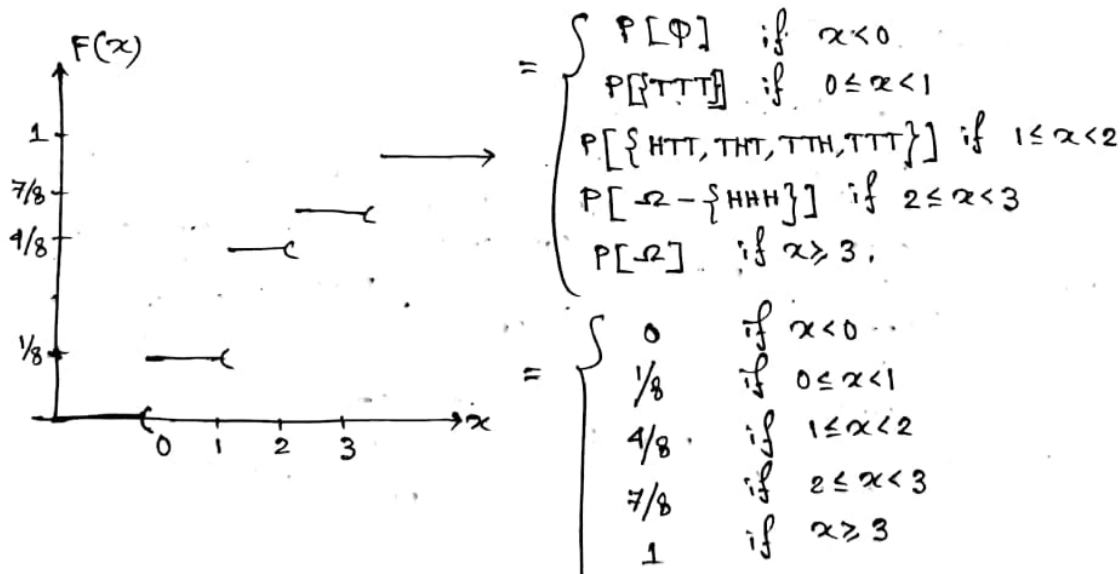 F(x)
1
7/8
4/8
1/8
0 1 2 3
x
= { P[Φ] if x<0
P[{TTT}] if 0≤x<1
P[{HTT, THT, TTH, TTT}] if 1≤x<2
P[Ω-{HHH}] if 2≤x<3
P[Ω] if x≥3.
= { 0 if x<0
1/8 if 0≤x<1
4/8 if 1≤x<2
7/8 if 2≤x<3
1 if x≥3